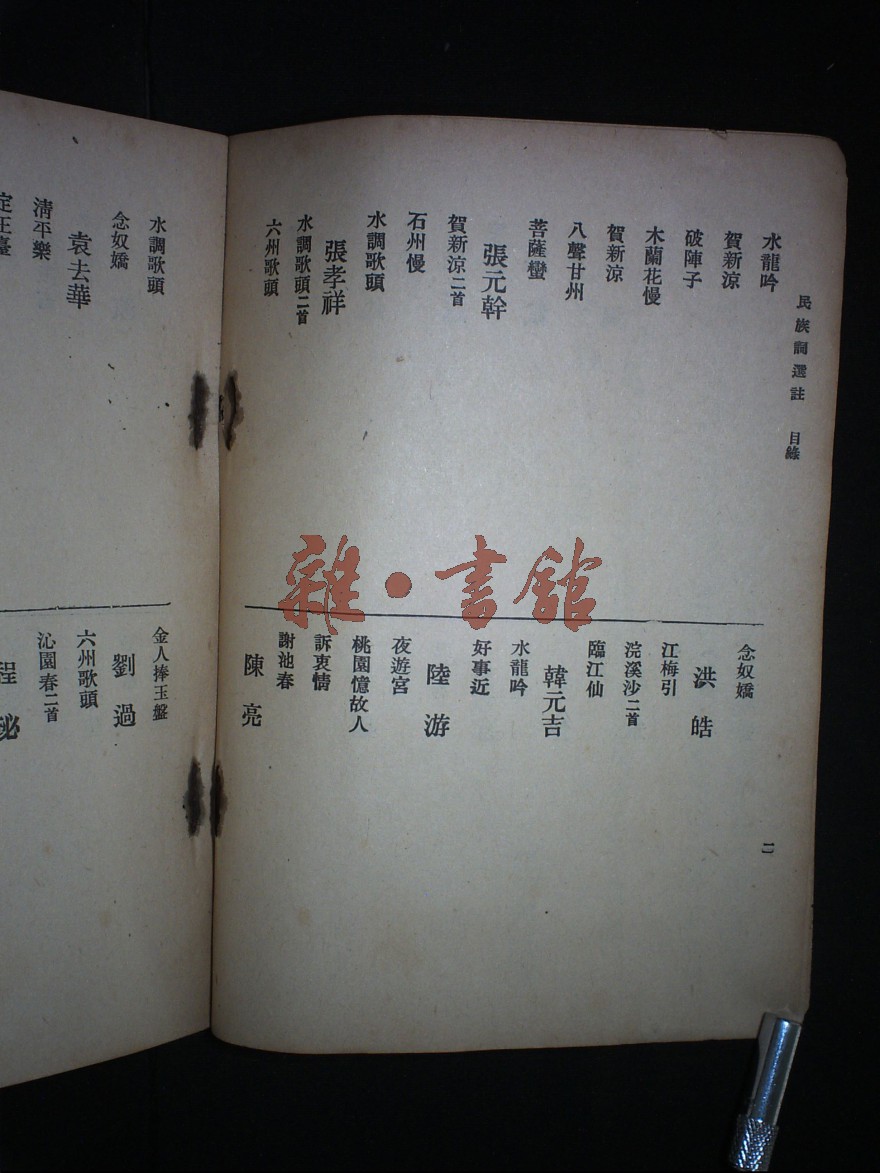 民族詞選註 目錄
水龍吟
賀新涼
破陣子
木蘭花慢
賀新涼
八聲甘州
菩薩蠻
張元幹
賀新涼二首
石州慢
水調歌頭
張孝祥
水調歌頭二首
六州歌頭
念奴嬌
洪皓
江梅引
浣溪沙二首
臨江仙
韓元吉
水龍吟
好事近
陸游
夜遊宮
桃園憶故人
訴衷情
謝池春
陳亮
二
水調歌頭
念奴嬌
袁去華
清平樂
定王臺
金人捧玉盤
劉過
六州歌頭
沁園春二首
雜·書館